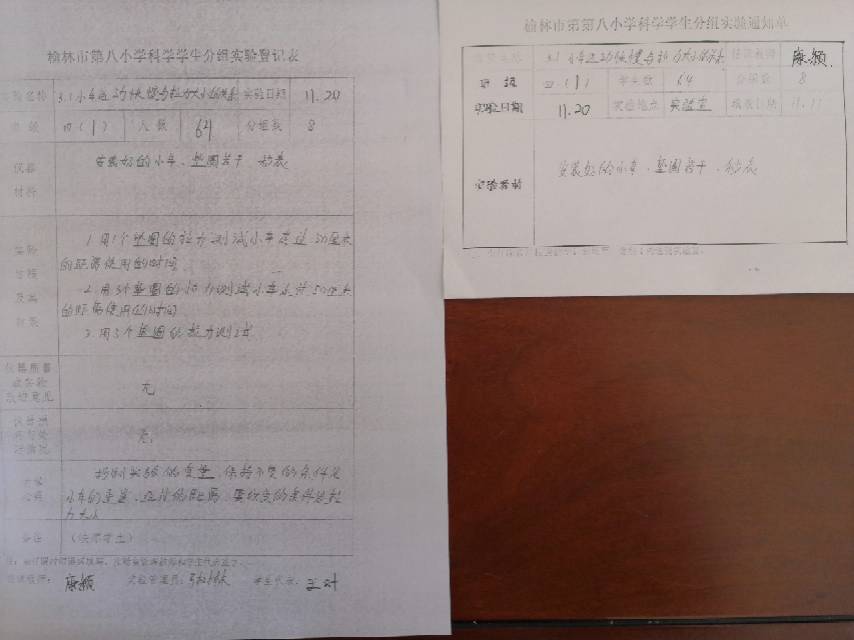 榆林市第八小学科学学生分组实验登记表
实验名称 3.1小车运动快慢与拉力大小的关系 实验日期 11.20
班级 四(1) 人数 64 分组数 8
仪器 安装好的小车、垫圈若干、秒表
材料
1.用1个垫圈的拉力测试小车走过50厘米
的距离使用的时间
2.用3个垫圈的拉力测试小车走过50厘米
的距离使用的时间
3.用5个垫圈的拉力测试
无
无
控制实验的变量,保持不变的条件是
小车的重量、运行的距离,要改变的条件是拉
力大小
备注
任课教师:康颖 实验管理员: 学生代表:
榆林市第第八小学科学学生分组实验通知单
3.1小车运动快慢与拉力大小的关系 任课教师 康颖
班级 四(1) 学生数 64 分组数 8
实验日期 11.20 实验地点 实验室 填表日期 11.11
实验器材 安装好的小车、垫圈若干、秒表